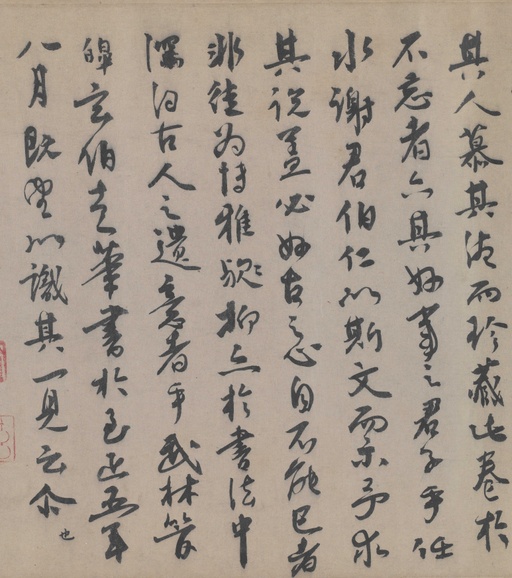 其人慕其清而珍藏此卷於
不忘者亦其好事之君子乎任
水謝君伯仁以斯文而示予求
其説蓋必好古之心自不能已者
非徒為博雅歟抑亦於書法中
深得古人之遺意者乎武林管
皞玄伯走筆書於至正五年
八月既望以識其一見云尒
也